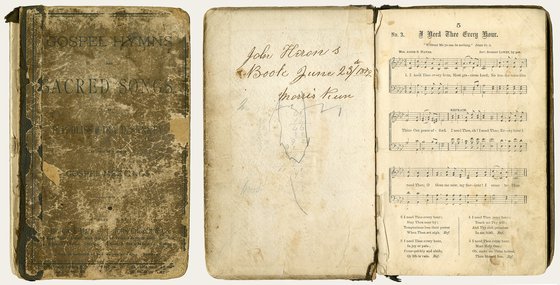 GOSPEL HYMNS
SACRED SONGS.
GOSPEL MEETINGS
John Heron s
Book June
Morris Run
5
No. 3. I Need Thee Every Hour.
"Without Me ye can do nothing." John 15: 5.
Mrs. Annie S. Hawks. Rev. Robert Lowry, by per.
1. I need Thee every hour, Most gracious Lord; No tender voice like
REFRAIN.
Thine Can peace afford. I need Thee, oh! I need Thee; Every hour I
need Thee; O bless me now, my Saviour! I come to Thee.
2 I need Thee every hour;
Stay Thou near by;
Temptations lose their power
When Thou art nigh. Ref.
3 I need Thee every hour,
In joy or pain;
Come quickly and abide,
Or life is vain. Ref.
4 I need Thee every hour;
Teach me Thy will;
And Thy rich promises
In me fulfil. Ref.
5 I need Thee every hour,
Most Holy One;
Oh, make me Thine indeed,
Thou blessed Son. Ref.